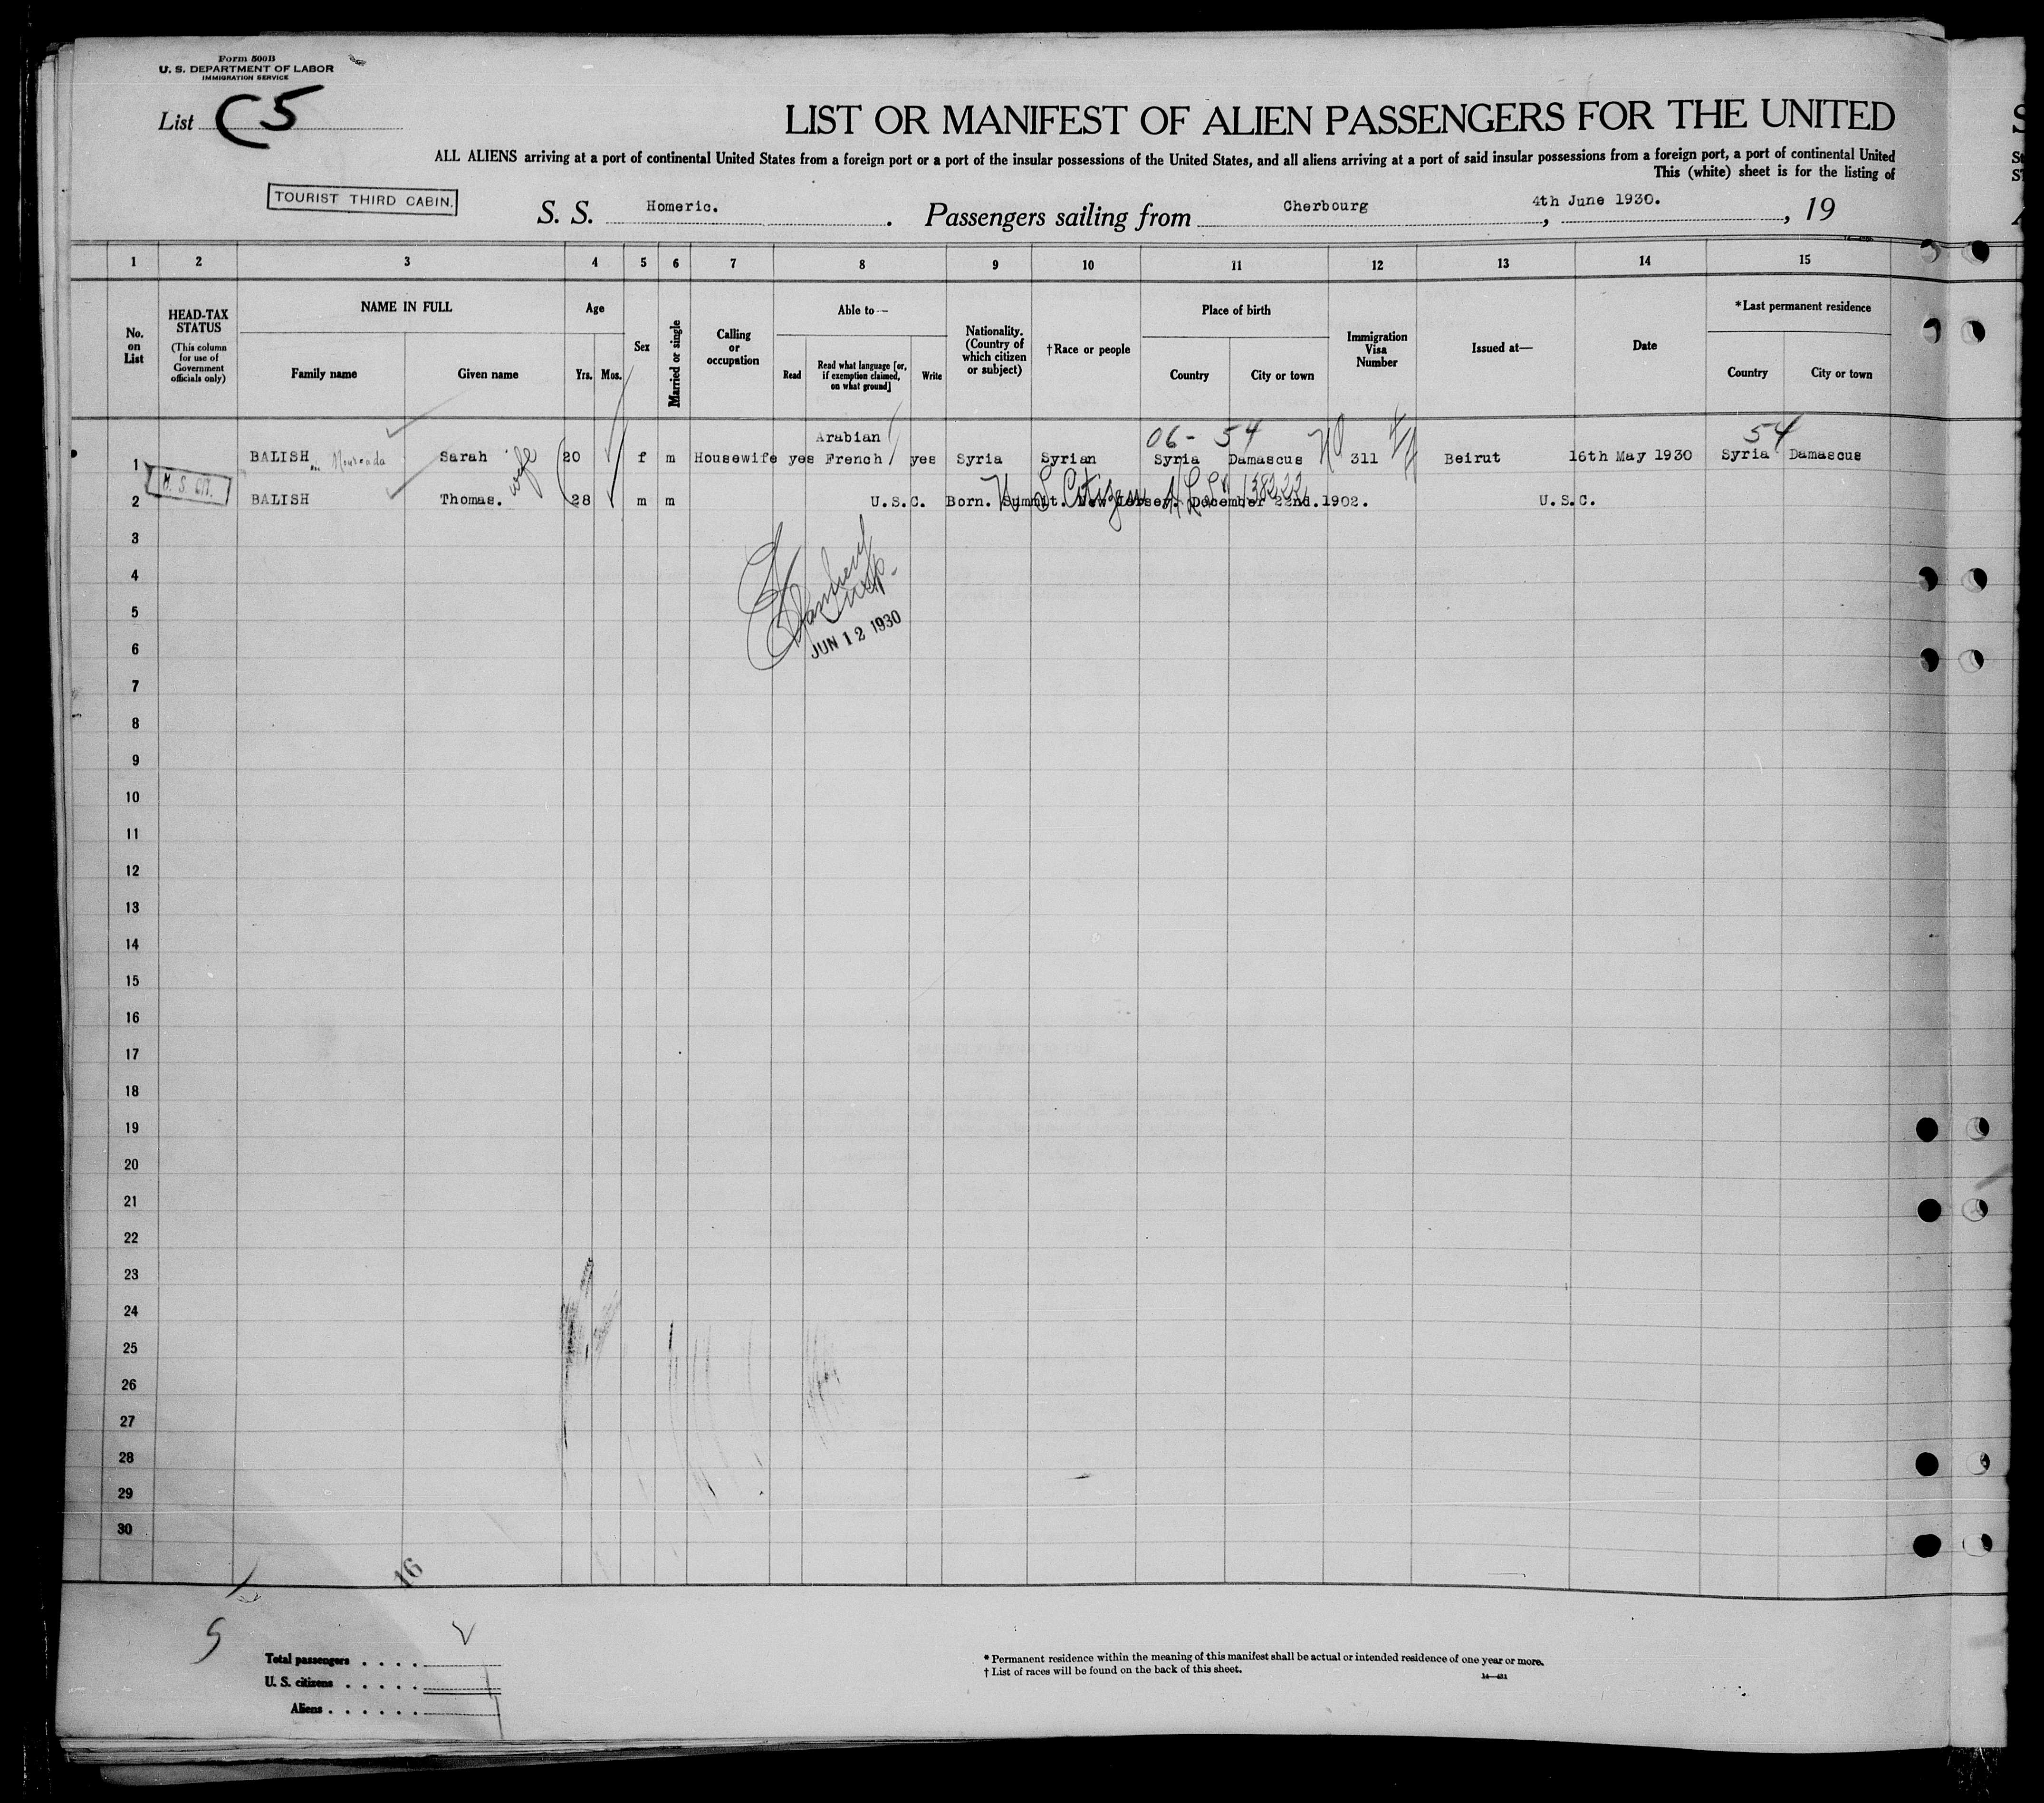 Form 500B
U. S. DEPARTMENT OF LABOR
IMMIGRATION SERVICE
List C5
LIST OR MANIFEST OF ALIEN PASSENGERS FOR THE UNITED
ALL ALIENS arriving at a port of continental United States from a foreign port or a port of the insular possessions of the United States, and all aliens arriving at a port of said insular possessions from a foreign port, a port of continental United
This (white) sheet is for the listing of
TOURIST THIRD CABIN.
S. S. Homeric. Passengers sailing from Cherbourg, 4th June 1930., 19
1 2 3 4 5 6 7 8 9 10 11 12 13 14 15
No. on List
HEAD-TAX STATUS
(This column for use of Government officials only)
NAME IN FULL
Family name Given name
Age
Yrs. Mos.
Sex
Married or single
Calling or occupation
Able to—
Read Read what language [or, if exemption claimed, on what ground] Write
Nationality. (Country of which citizen or subject)
†Race or people
Place of birth
Country City or town
Immigration Visa Number
Issued at—
Date
*Last permanent residence
Country City or town
06- 54 54
Arabian
1 BALISH Sarah wife 20 f m Housewife yes French yes Syria Syrian Syria Damascus 311 Beirut 16th May 1930 Syria Damascus
2 BALISH Thomas. 28 m m U.S.C. Born. Summit. New Jersey. December 22nd.1902. U.S.C.
3
4
5
JUN 12 1930
6
7
8
9
10
11
12
13
14
15
16
17
18
19
20
21
22
23
24
25
26
27
28
29
30
16
Total passengers
U. S. citizens
Aliens
* Permanent residence within the meaning of this manifest shall be actual or intended residence of one year or more.
† List of races will be found on the back of this sheet.